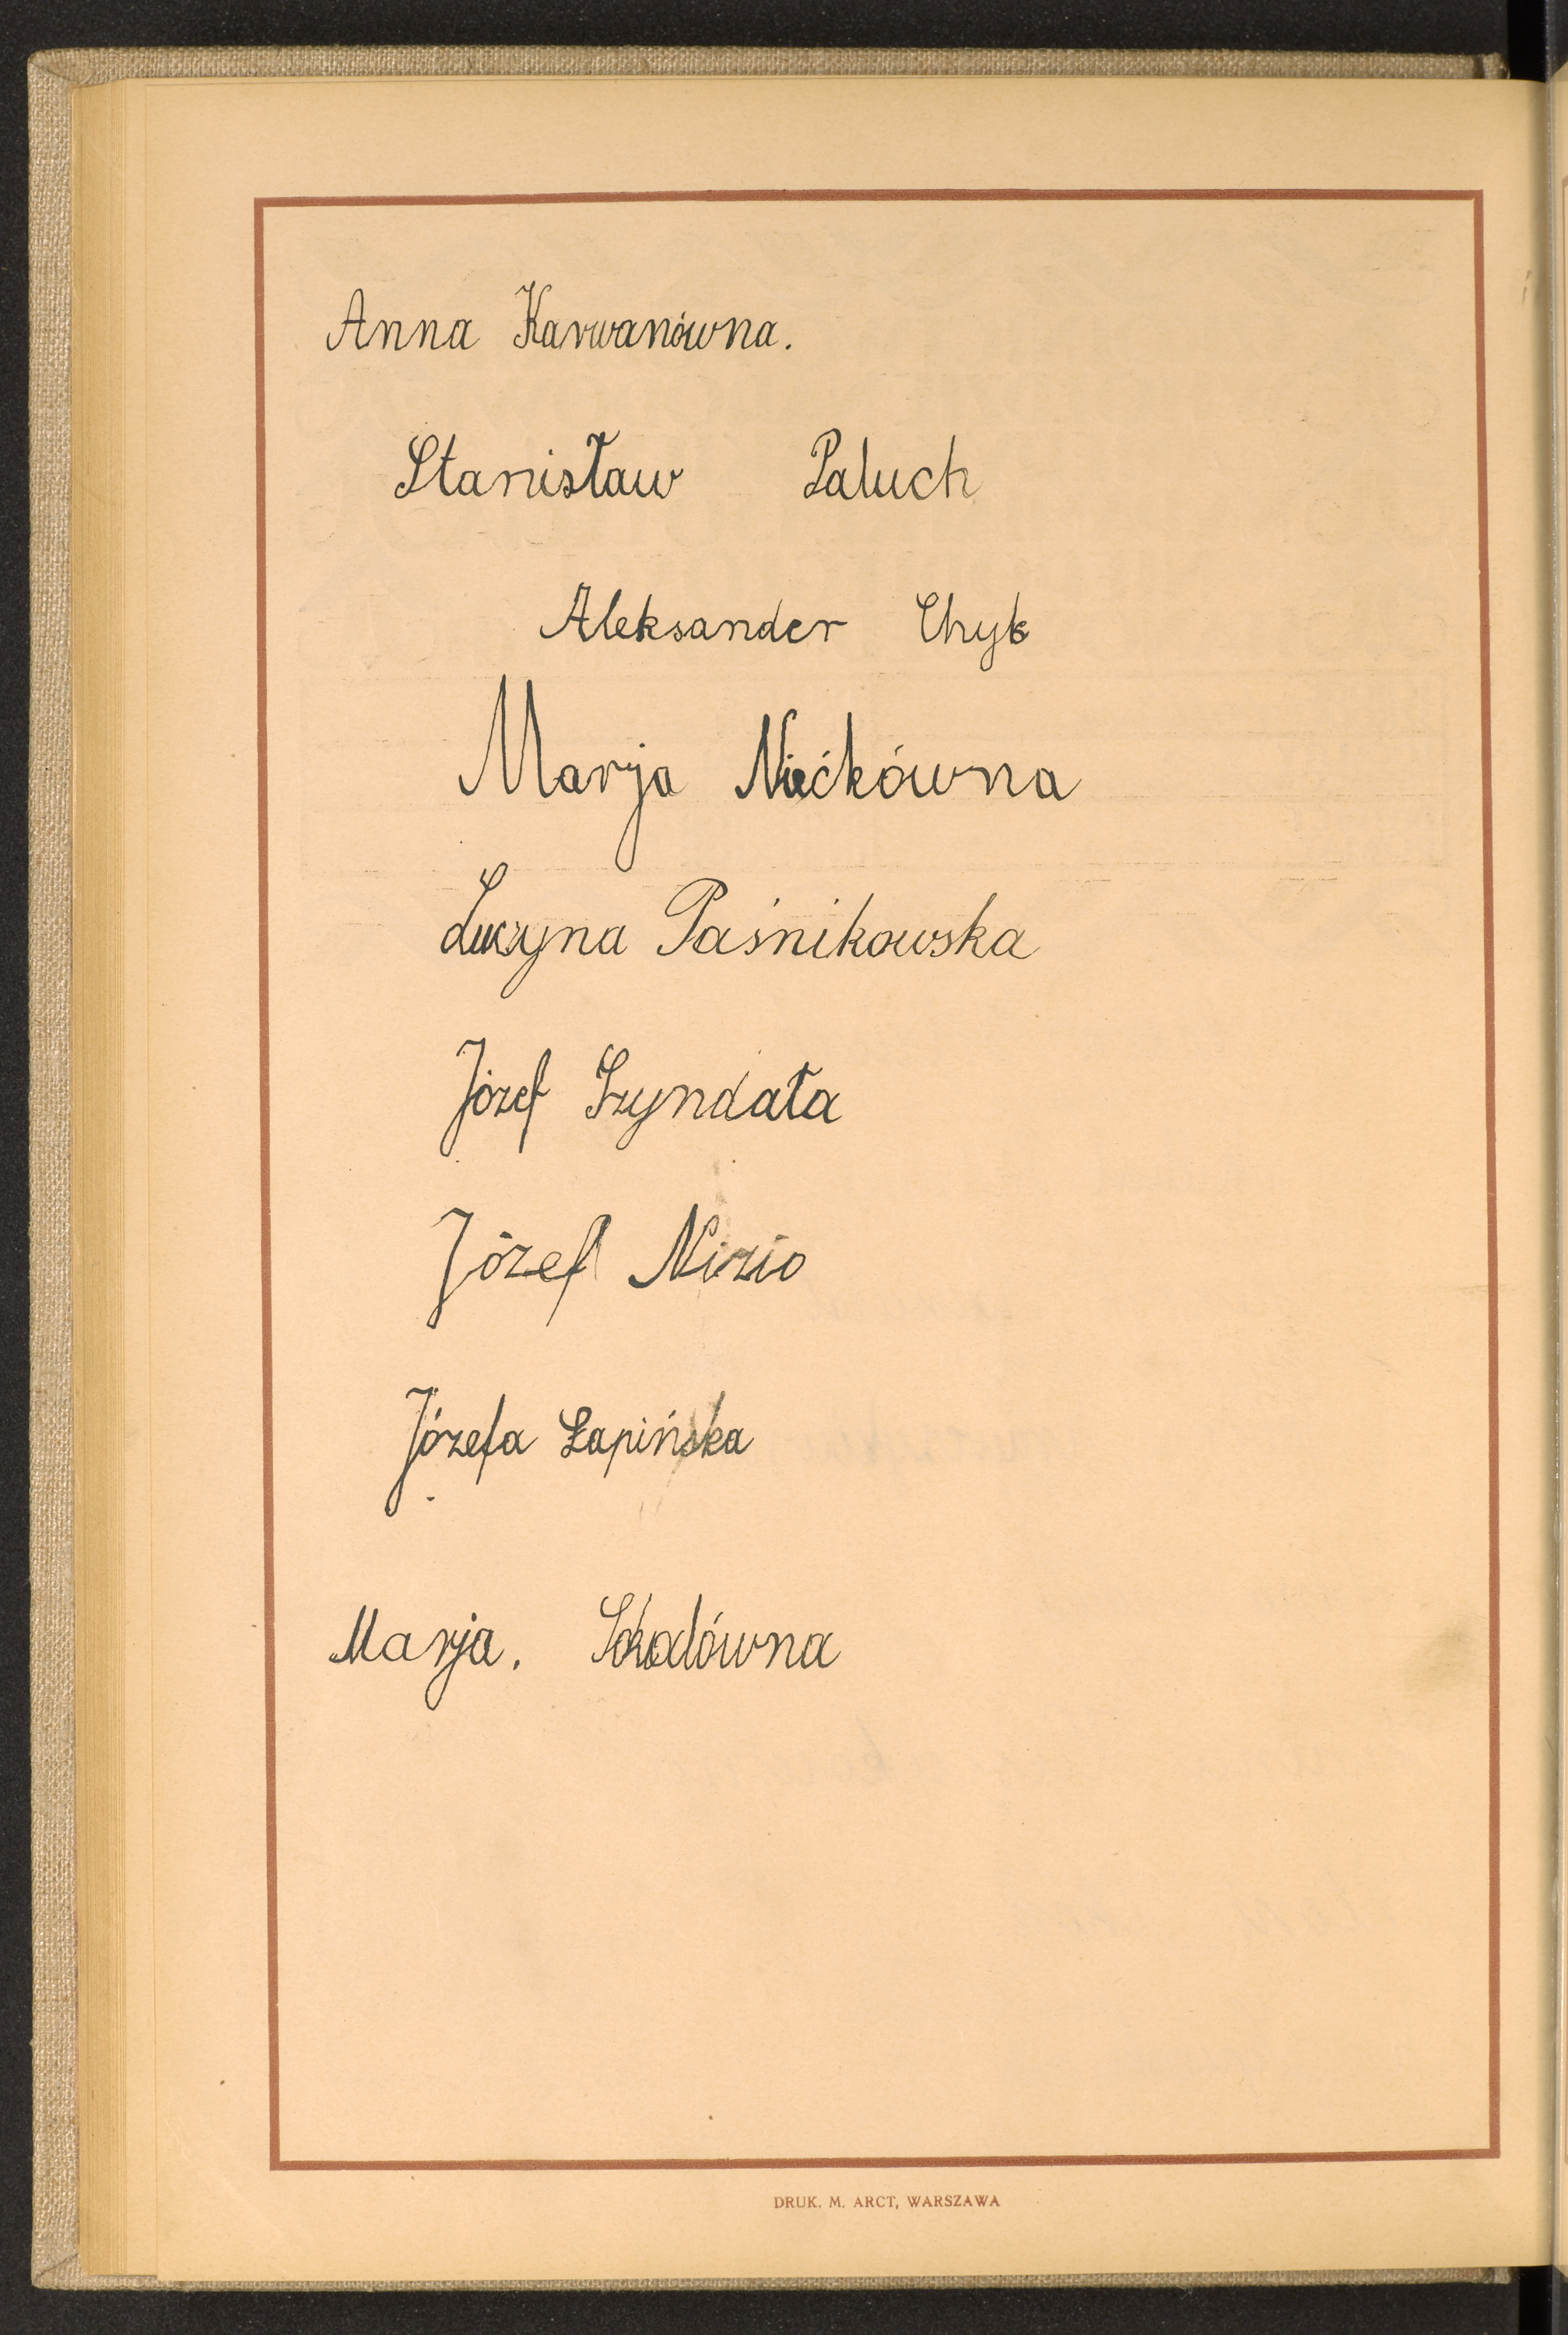 Anna Karwanówna.
Stanisław Paluch
Aleksander Chyk
Marja Niećkówna
Lucyna Paśnikowska
Józef Szyndała
Józef Nizio
Józefa Łapińska
Marja.
DRUK. M. ARCT, WARSZAWA